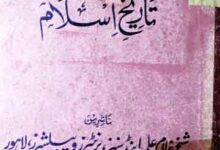 تاریخ اسلام
ناشرین
شیخ غلام علی اینڈ سنز، پرنٹرز و پبلشرز، لاہور